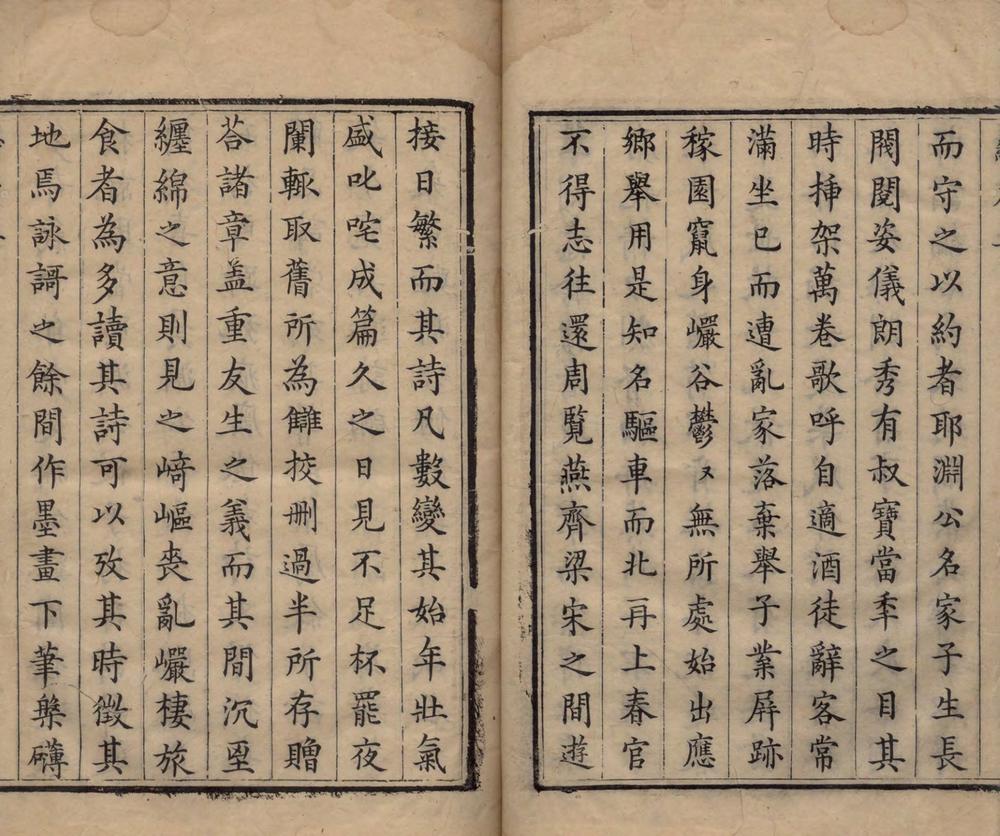 而守之以約者耶淵公名家子生長
閥閱姿儀朗秀有叔寶當季之目其
時揷架萬卷歌呼自適酒徒辭客常
滿坐已而遭亂家落棄舉子業屏跡
稼園竄身巗谷鬱〻無所處始出應
鄉舉用是知名驅車而北再上春官
不得志往還周覧燕齊梁宋之間遊
接日繁而其詩凡數變其始年壯氣
盛叱咤成篇久之日見不足杯罷夜
闌輙取舊所為讎挍刪過半所存贈
荅諸章盖重友生之義而其間沉至
纏綿之意則見之﨑嶇喪亂巗棲旅
食者為多讀其詩可以攷其時徵其
地焉詠謌之餘間作墨畫下筆槃礴